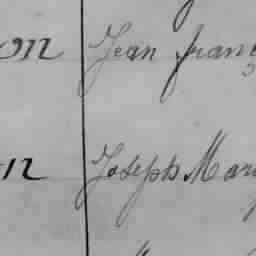 on Jean franç
n Joseph Mar